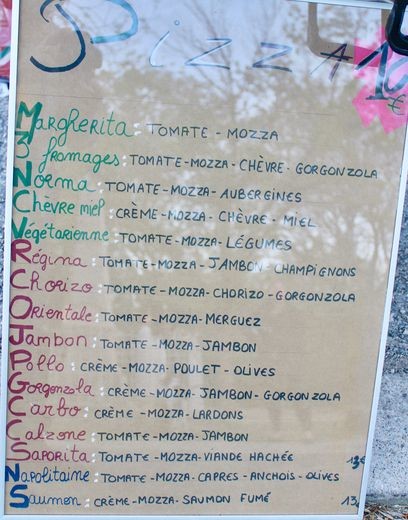 Pizza 10€
Margherita : TOMATE - MOZZA
3 fromages : TOMATE-MOZZA-CHÈVRE-GORGONZOLA
Norma : TOMATE-MOZZA-AUBERGINES
Chèvre miel : CRÈME-MOZZA-CHÈVRE-MIEL
Végétarienne : TOMATE-MOZZA-LÉGUMES
Régina : TOMATE-MOZZA-JAMBON-CHAMPIGNONS
Chorizo : TOMATE-MOZZA-CHORIZO-GORGONZOLA
Orientale : TOMATE-MOZZA-MERGUEZ
Jambon : TOMATE-MOZZA-JAMBON
Pollo : CRÈME-MOZZA-POULET-OLIVES
Gorgonzola : CRÈME-MOZZA-JAMBON-GORGONZOLA
Carbo : CRÈME-MOZZA-LARDONS
Calzone : TOMATE-MOZZA-JAMBON
Saporita : TOMATE-MOZZA-VIANDE HACHÉE
Napolitaine : TOMATE-MOZZA-CAPRES-ANCHOIS-OLIVES
Saumon : CRÈME-MOZZA-SAUMON FUMÉ 13